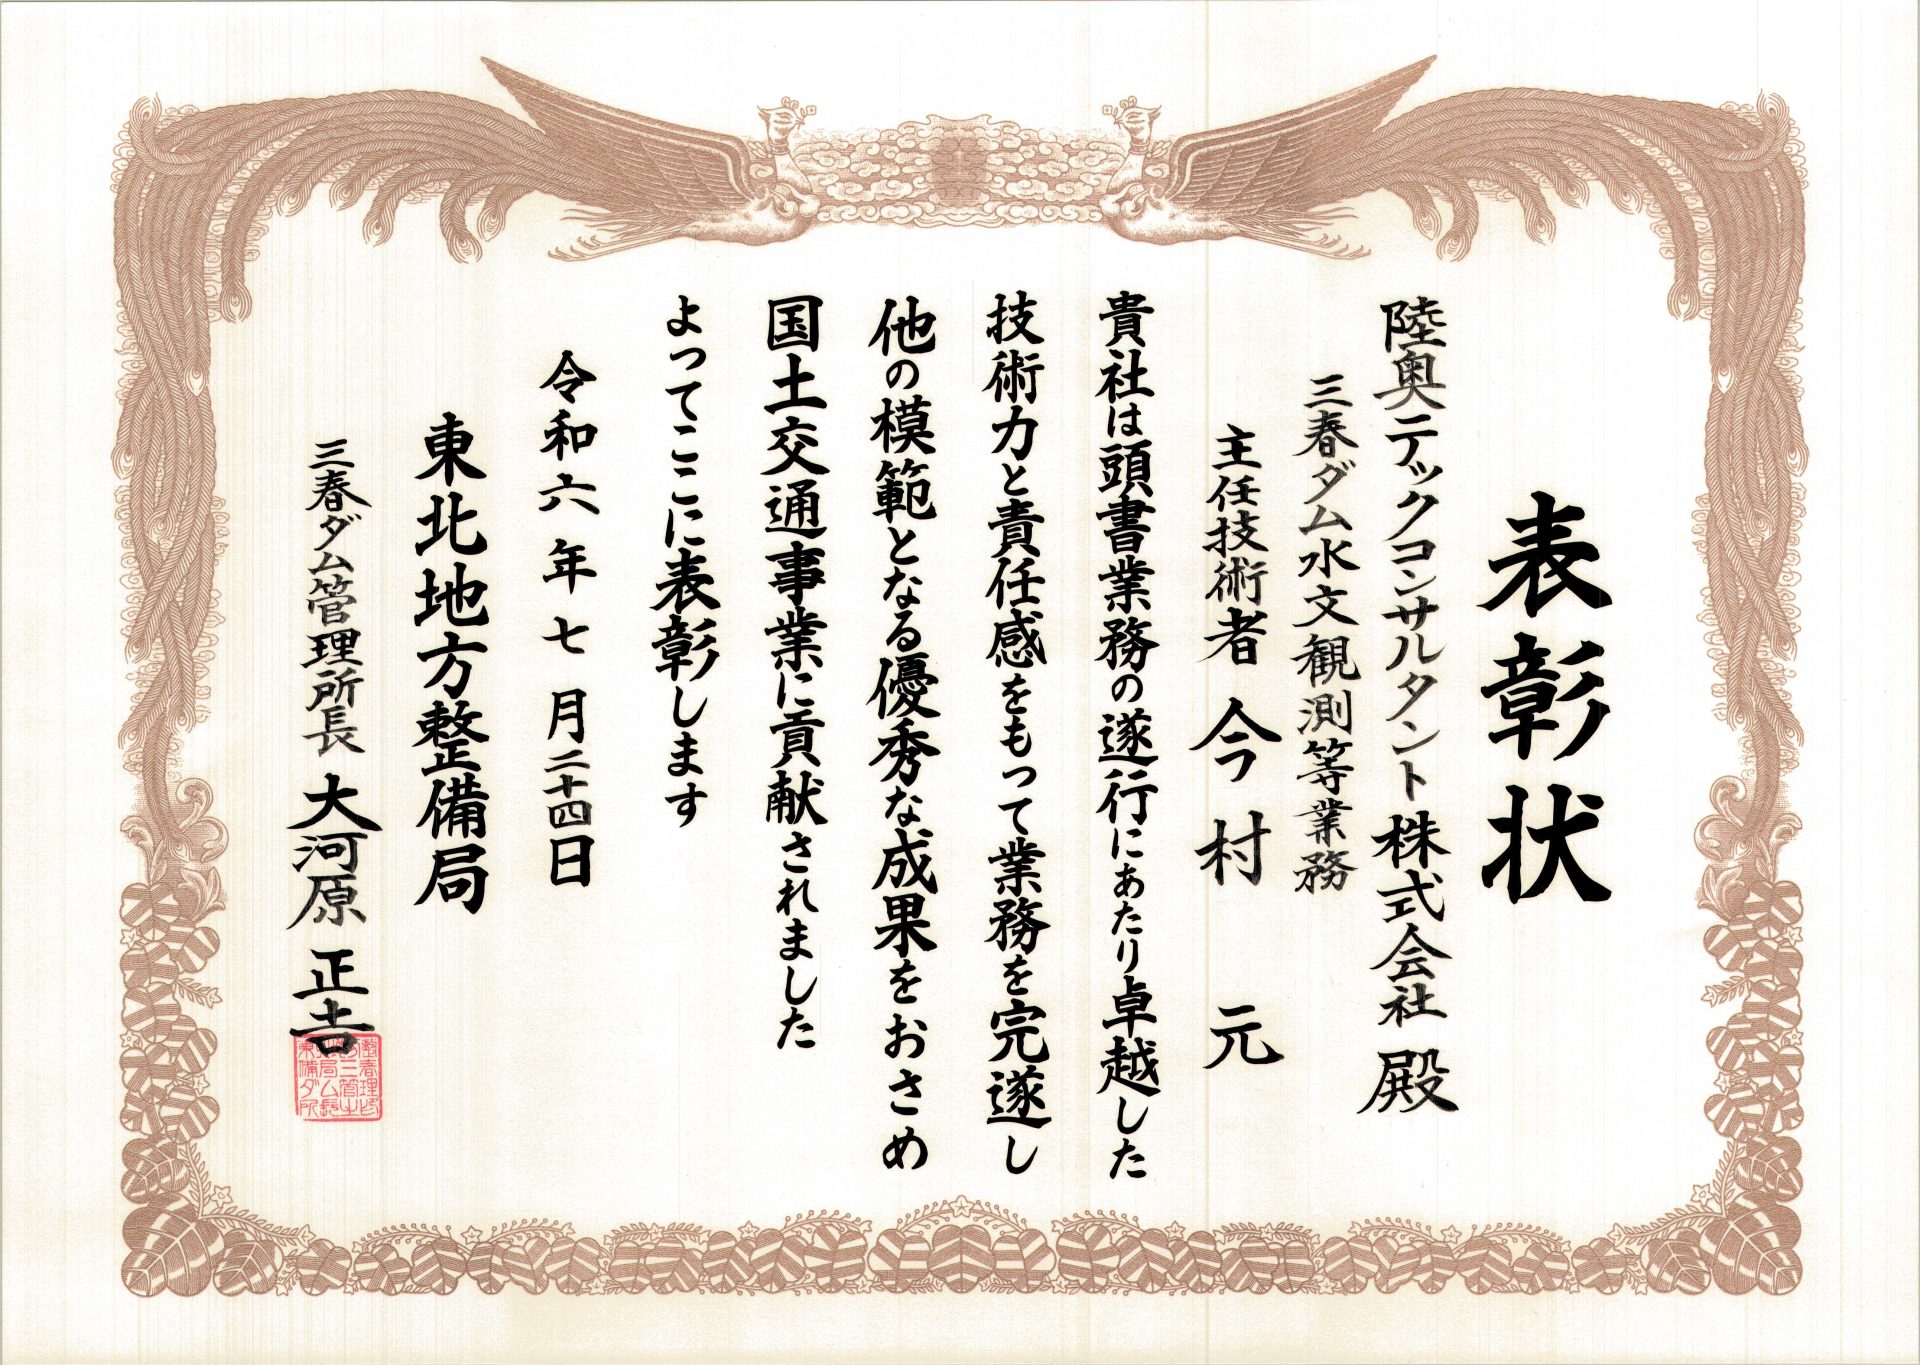 表彰状
陸奥テックコンサルタント株式会社 殿
三春ダム水文観測等業務
主任技術者 今村 元
貴社は頭書業務の遂行にあたり卓越した
技術力と責任感をもって業務を完遂し
他の模範となる優秀な成果をおさめ
国土交通事業に貢献されました
よってここに表彰します
令和六年七月二十四日
東北地方整備局
三春ダム管理所長 大河原 正吉